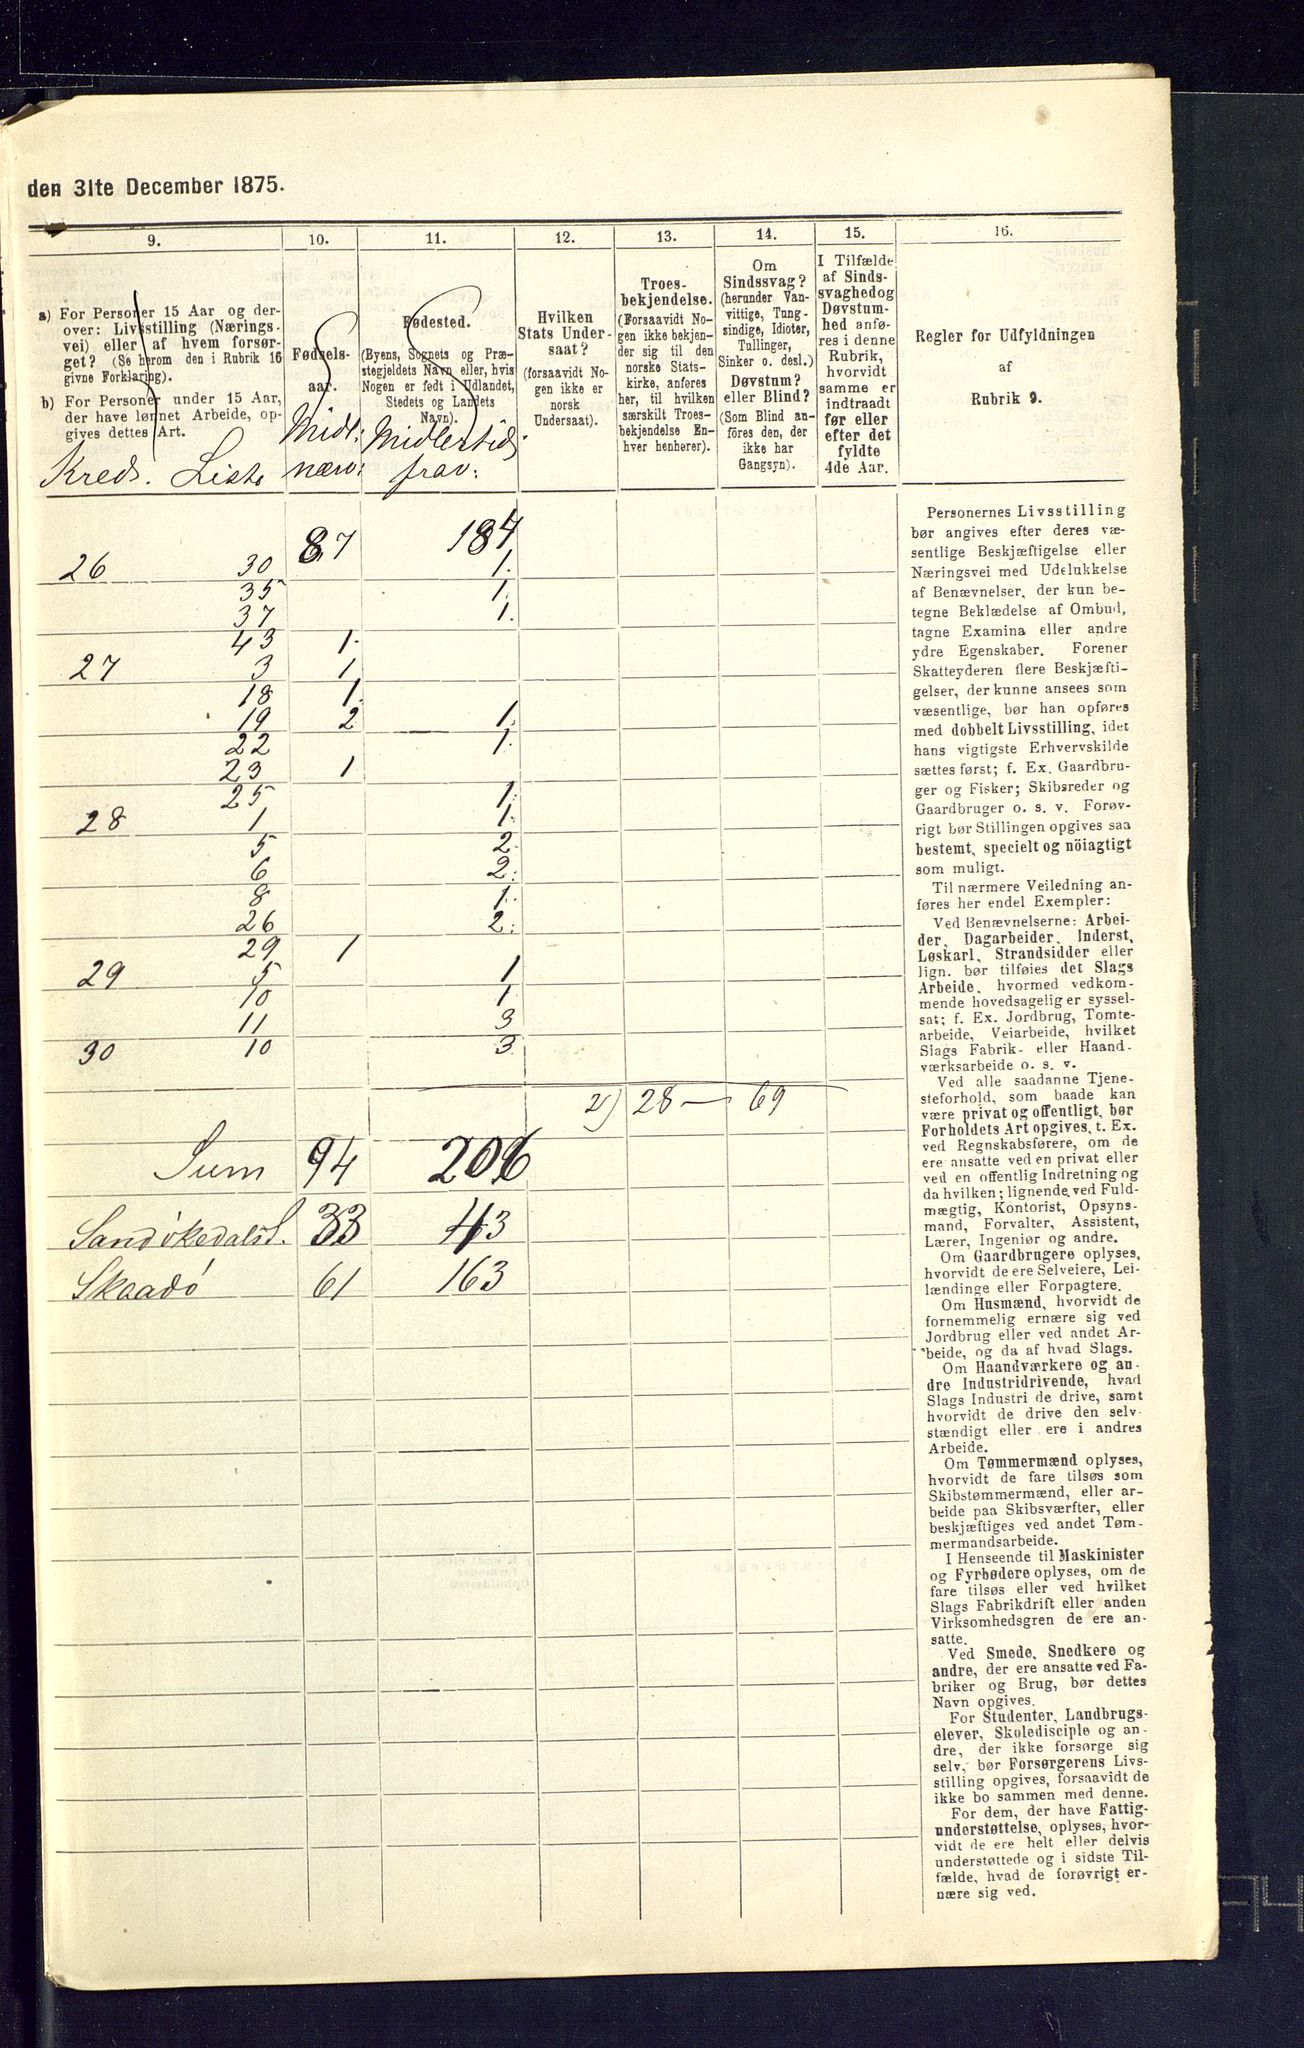 den 31te December 1875.
9. 10. 11. 12. 13. 14. 15. 16.
a) For Personer 15 Aar og der-
over: Livsstilling (Nærings-
vei) eller af hvem forsør-
get? (Se herom den i Rubrik 16
givne Forklaring).
b) For Personer under 15 Aar,
der have lønnet Arbeide, op-
gives dettes Art.
Kreds. Liste
Fødsels-
aar.
Midl:
nærv:
Fødested.
(Byens, Sognets og Præ-
stegjeldets Navn eller, hvis
Nogen er født i Udlandet,
Stedets og Landets
Navn).
Midlertid.
frav:
Hvilken
Stats Under-
saat?
(forsaavidt No-
gen ikke er
norsk
Undersaat).
Troes-
bekjendelse.
(Forsaavidt No-
gen ikke bekjen-
der sig til den
norske Stats-
kirke, anføres
her, til hvilken
særskilt Troes-
bekjendelse En-
hver henhører).
Om
Sindssvag?
(herunder Van-
vittige, Tung-
sindige, Idioter,
Tullinger,
Sinker o. desl.)
Døvstum?
eller Blind?
(Som Blind an-
føres den, der
ikke har
Gangsyn).
I Tilfælde
af Sinds-
svaghed og
Døvstum-
hed anfø-
res i denne
Rubrik,
hvorvidt
samme er
indtraadt
før eller
efter det
fyldte
4de Aar.
Regler for Udfyldningen
af
Rubrik 9.
87 184
26 30 1.
35 1.
37 1.
43 1.
27 3 1
18 1.
19 2 1.
22 1.
23 1
25 1.
28 1 1.
5 2.
6 2.
8 1.
26 2.
29 1
29 5 1
10 1
11 3
30 10 3
2) 28 — 69
Sum 94 206
Sandøkedals S. 33 43
Skaadø 61 163
Personernes Livsstilling
bør angives efter deres væ-
sentlige Beskjæftigelse eller
Næringsvei med Udelukkelse
af Benævnelser, der kun be-
tegne Beklædelse af Ombud,
tagne Examina eller andre
ydre Egenskaber. Forener
Skatteyderen flere Beskjæfti-
gelser, der kunne ansees som
væsentlige, bør han opføres
med dobbelt Livsstilling, idet
hans vigtigste Erhvervskilde
sættes først; f. Ex. Gaardbru-
ger og Fisker; Skibsreder og
Gaardbruger o. s. v. Forøv-
rigt bør Stillingen opgives saa
bestemt, specielt og nöiagtigt
som muligt.
Til nærmere Veiledning an-
føres her endel Exempler:
Ved Benævnelserne: Arbei-
der, Dagarbeider, Inderst,
Løskarl, Strandsidder eller
lign. bør tilføies det Slags
Arbeide, hvormed vedkom-
mende hovedsagelig er syssel-
sat; f. Ex. Jordbrug, Tomte-
arbeide, Veiarbeide, hvilket
Slags Fabrik- eller Haand-
værksarbeide o. s. v.
Ved alle saadanne Tjene-
steforhold, som baade kan
være privat og offentligt, bør
Forholdets Art opgives, t. Ex.
ved Regnskabsførere, om de
ere ansatte ved en privat eller
ved en offentlig Indretning og
da hvilken; lignende ved Fuld-
mægtig, Kontorist, Opsyns-
mand, Forvalter, Assistent,
Lærer, Ingeniør og andre.
Om Gaardbrugere oplyses,
hvorvidt de ere Selveiere, Lei-
lændinge eller Forpagtere.
Om Husmænd, hvorvidt de
fornemmelig ernære sig ved
Jordbrug eller ved andet Ar-
beide, og da af hvad Slags.
Om Haandværkere og an-
dre Industridrivende, hvad
Slags Industri de drive, samt
hvorvidt de drive den selv-
stændigt eller ere i andres
Arbeide.
Om Tømmermænd oplyses,
hvorvidt de fare tilsøs som
Skibstømmermænd, eller ar-
beide paa Skibsværfter, eller
beskjæftiges ved andet Tøm-
mermandsarbeide.
I Henseende til Maskinister
og Fyrbødere oplyses, om de
fare tilsøs eller ved hvilket
Slags Fabrikdrift eller anden
Virksomhedsgren de ere an-
satte.
Ved Smede, Snedkere og
andre, der ere ansatte ved Fa-
briker og Brug, bør dettes
Navn opgives.
For Studenter, Landbrugs-
elever, Skoledisciple og an-
dre, der ikke forsørge sig
selv, bør Forsørgerens Livs-
stilling opgives, forsaavidt de
ikke bo sammen med denne.
For dem, der have Fattig-
understøttelse, oplyses, hvor-
vidt de ere helt eller delvis
understøttede og i sidste Til-
fælde, hvad de forøvrigt er-
nære sig ved.